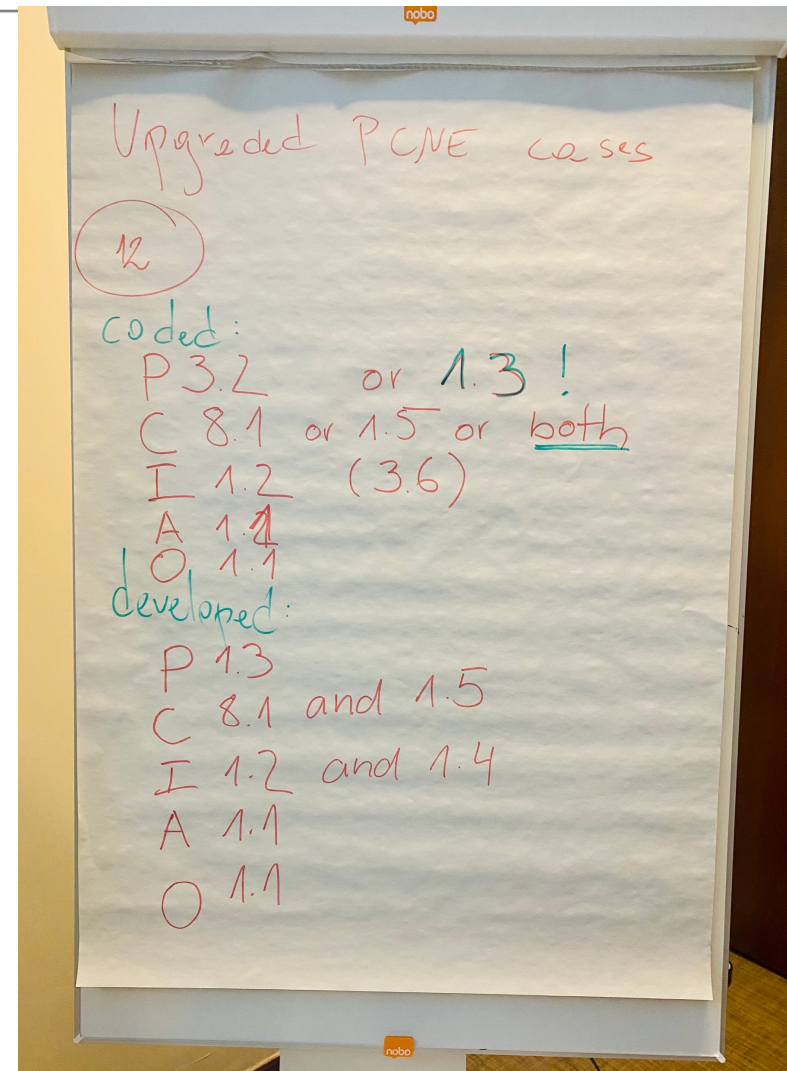 nobo
Upgreded PCNE cases
12
coded:
P 3.2 or 1.3 !
C 8.1 or 1.5 or both
I 1.2 (3.6)
A 1.1
O 1.1
developed:
P 1.3
C 8.1 and 1.5
I 1.2 and 1.4
A 1.1
O 1.1
nobo